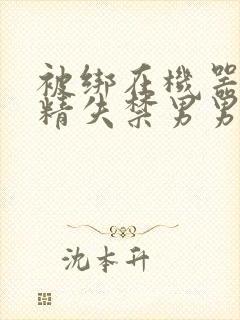 被绑在機器
精失禁男男
沈本升